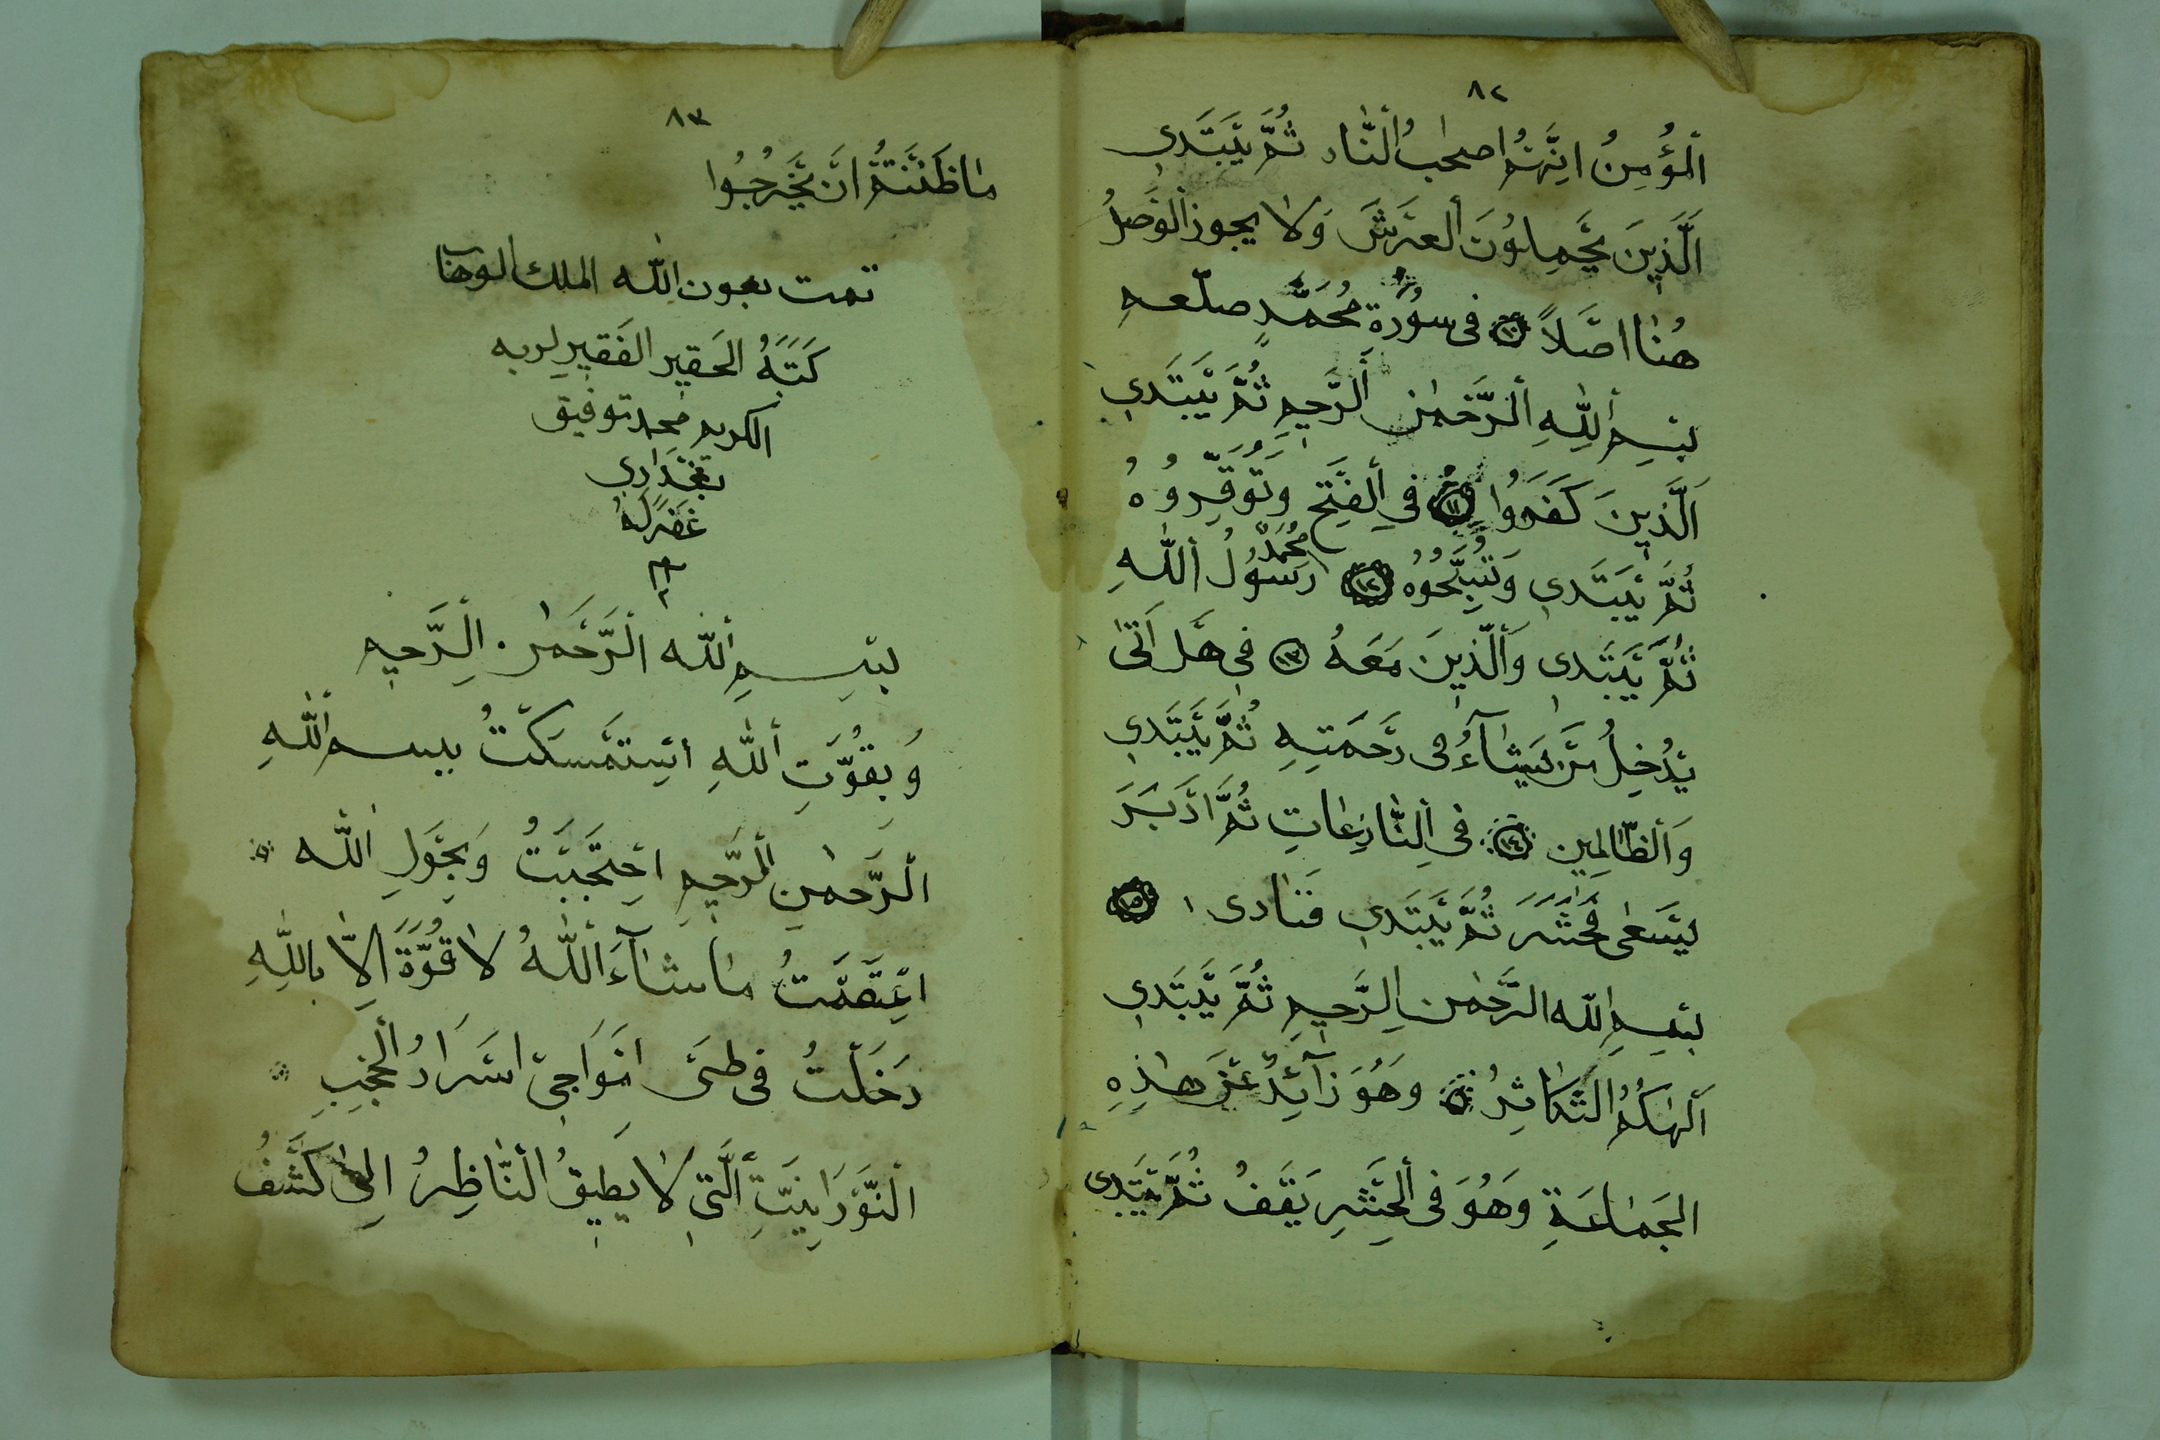 ٨٢
اَلْمُؤْمِنُ اِنَّهُمْ اَصحٰبُ اَلنَّار ثُمَّ يَبْتَدِي
اَلَّذِينَ يَحْمِلُونَ اَلْعَرْشَ وَلَا يجوز اَلْوَصْلُ
هُنَا اَصْلاً ١٠ فى سُورَةِ مُحَمَّدٍ صلّعم
بِسْمِ اَللّٰهِ اَلرَّحْمٰنِ اَلرَّحِيمِ ثُمَّ يَبْتَدِي
اَلَّذِينَ كَفَرُوا ١١ فِي اَلْفَتْحِ وَتُوَقِّرُوهُ
ثُمَّ يَبْتَدِي وَتُسَبِّحُوُهُ ١٢ مُحَمَّدٌ رَسُولُ اَللّٰهِ
ثُمَّ يَبْتَدِي وَاَلَّذِينَ مَعَهُ ١٣ فِي هَلْ اَتٰى
يُدْخِلُ مَنْ يَشَآءُ فى رَحْمَتِهِ ثُمَّ يَبْتَدِي
وَاَلظَّالِمِين ١٤ فى اَلنَّازِعَاتِ ثُمَّ اَدْبَرَ
يَسْعٰى فَحَشَرَ ثُمَّ يَبْتَدِي فَنَادى ١٥
بِسْمِ اللّٰه الرَّحْمٰن الرَّحِيمِ ثُمَّ يَبْتَدِي
اَلْهٰكُمُ التَّكَاثِرُ وَهُوَ زَآئِدٌ عَنْ هٰذِهِ
الجَمَاعَةِ وَهُوَ فى اَلْحَشْرِ يَقَفُ ثُمَّ يَبْتَدِى
٨٣
مَا ظَنَنْتُمْ اَنْ يَخْرُجُوا
تمت بعون اللّٰه الملك الوهاب
كَتَبَهُ الحَقِير الفَقِير لربه
الكريم محمد توفيق
بَغْدَادِي
غَفَرَ لَهُ
م
بِسْمِ اَللّٰه اَلرَّحْمٰن اَلرَّحِيمِ
وَبِقُوَّتِ اَللّٰهِ اسْتَمْسَكْتُ بِبِسم اَللّٰهِ
اَلرَّحمٰنِ اَلرَّحِيمِ احْتَجَبْتُ وَبِحَوْلِ اَللّٰه
اعْتَصَمْتُ مَا شَآءَ اَللّٰهُ لَا قُوَّةَ اِلَّا بِاللّٰهِ
دَخَلْتُ فى طَىِّ اَفْوَاجِىْ اَسْرَارُ اَلْحُجُبِ
اَلنَّوْرَانِيَّتِ اَلَّتِى لَا يَطِيقُ اَلنَّاظِرُ اِلىٰ كَشْفُ